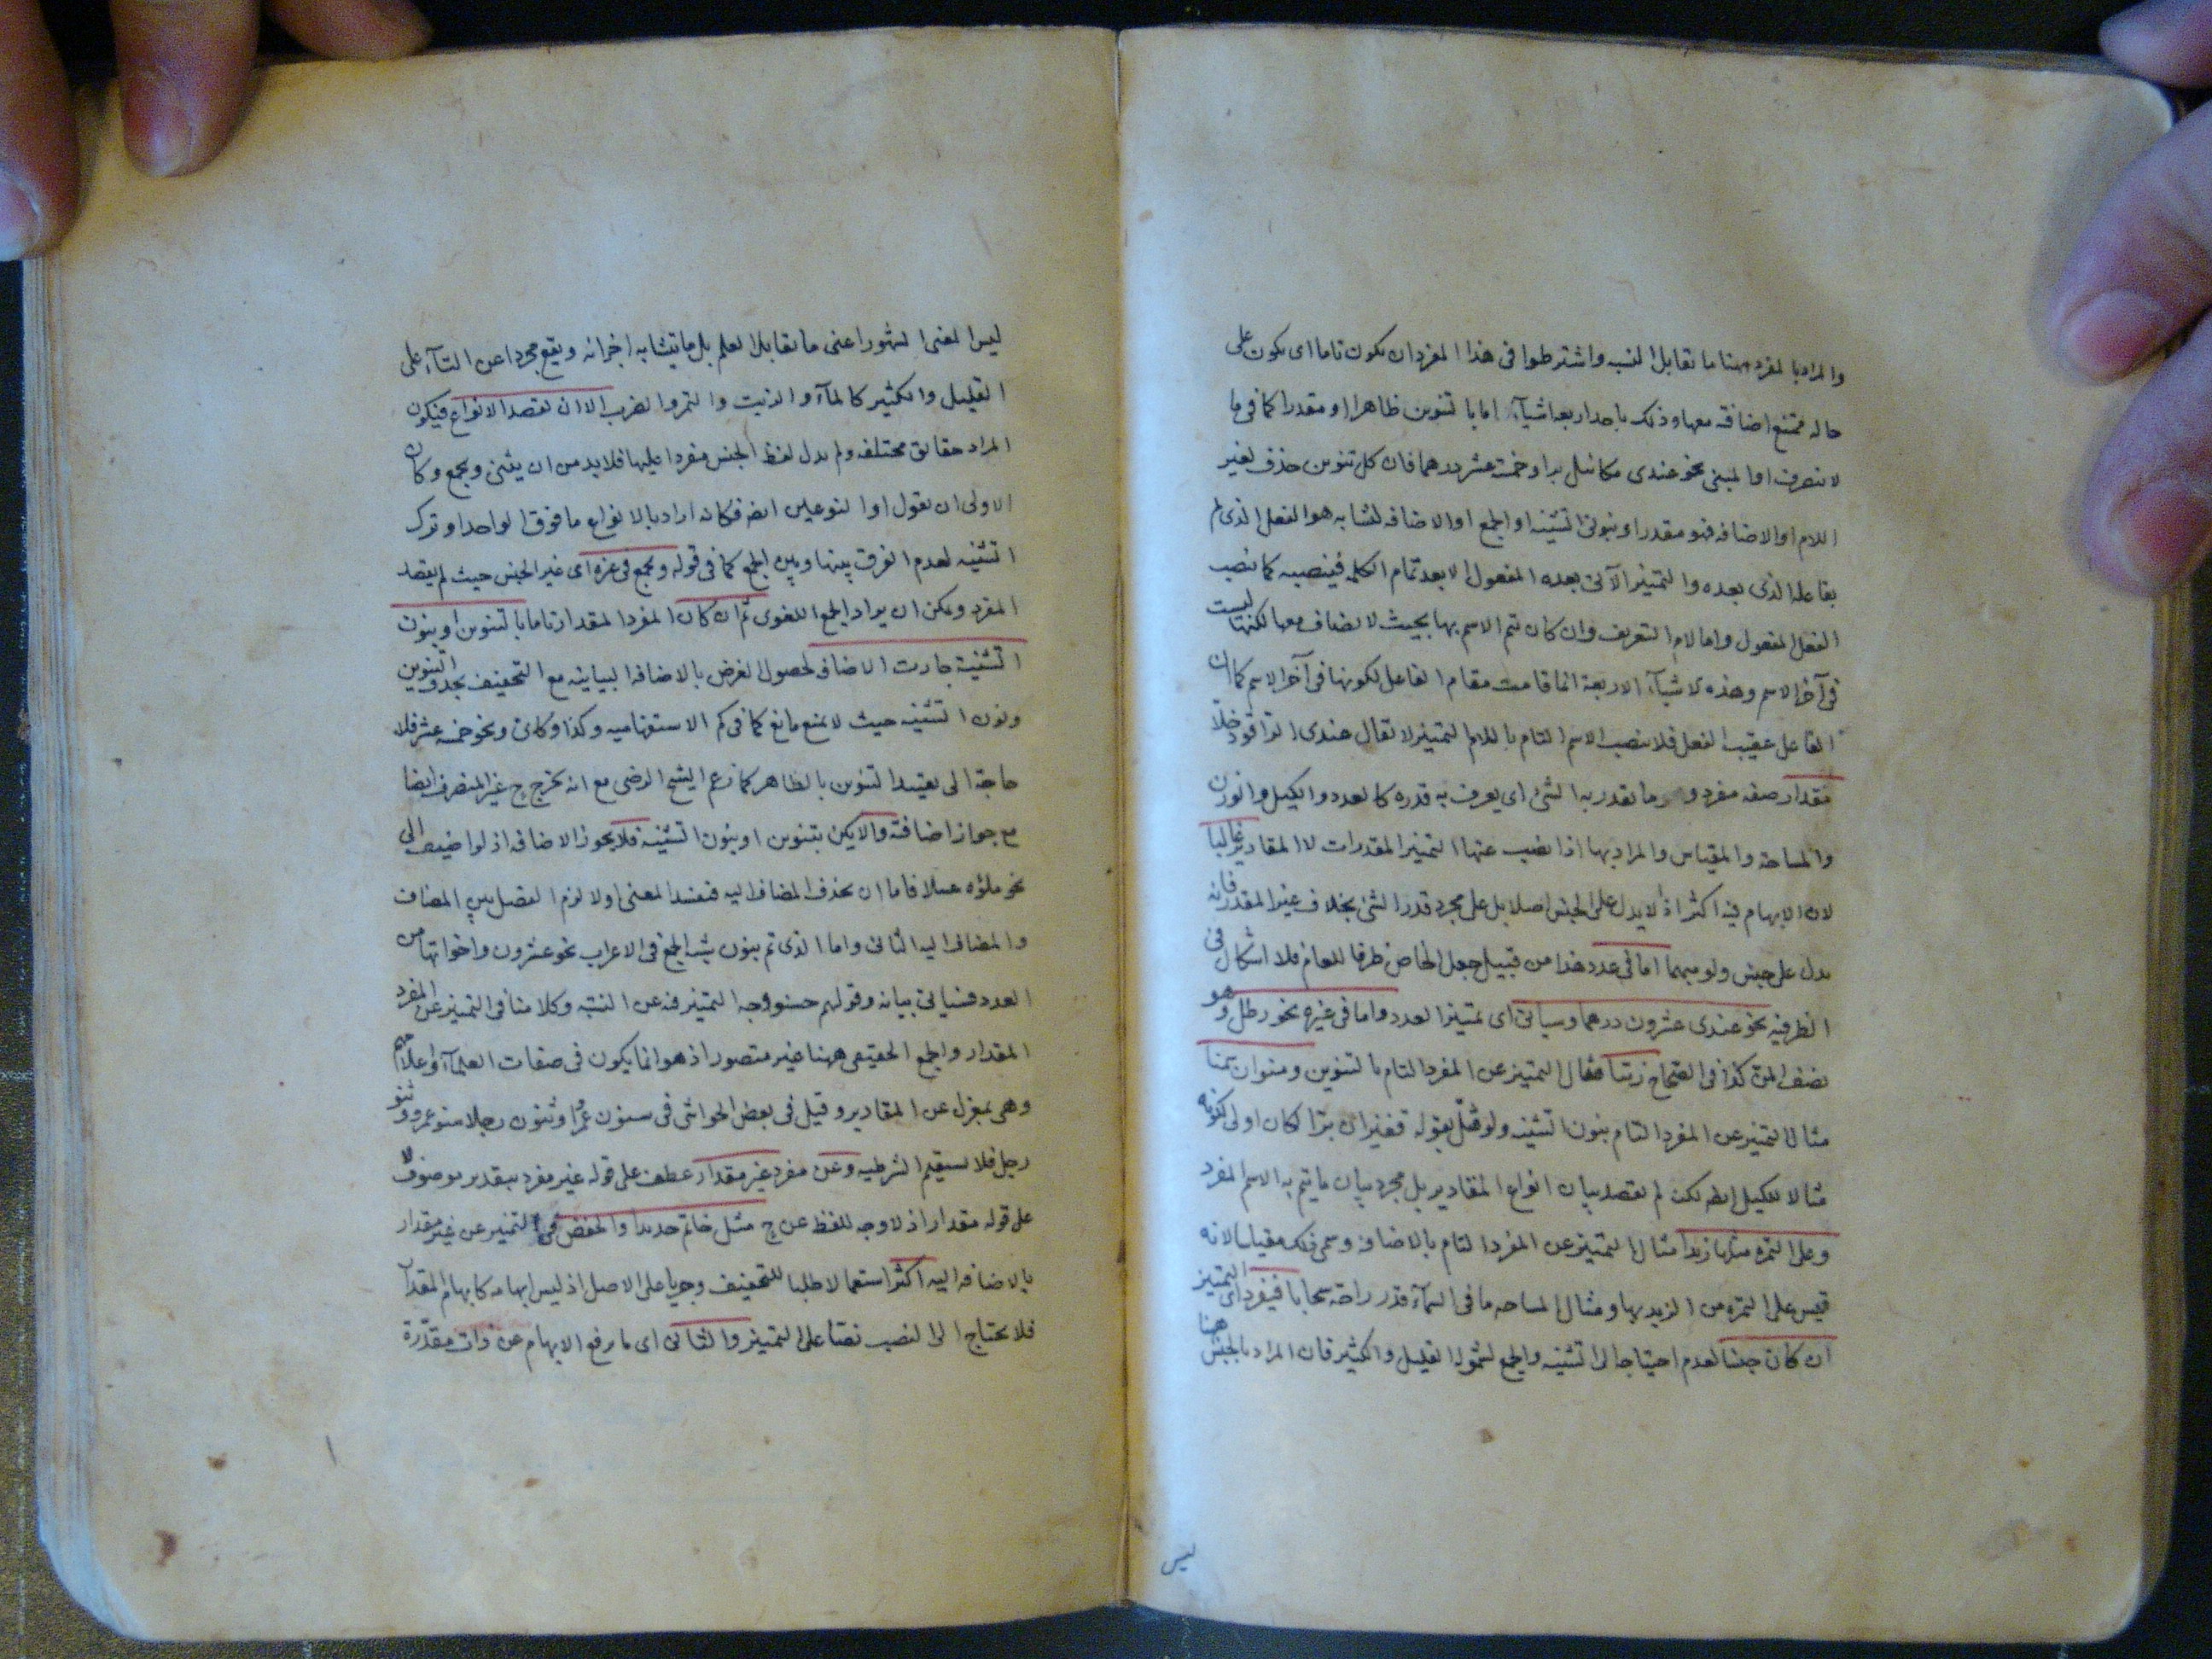 والمراد بالمفرد ههنا ما تقابل النسبه واشترطوا فى هذا المفرد ان يكون تاما اى يكون على
حاله يمتنع اضافته معها وذلك باحد اربعه اشيآء اما با لتنوين ظاهرا او مقدرا كما فى ما
لا ينصرف او المبنى نحو عندى مكائيل برا وخمسة عشر درهما فان كل تنوين حذف لغير
اللام او الاضافه فهو مقدر او بنونى التثنيه او الجمع او الاضافه لتشابه هو الفعل الذى تم
بفاعله الذى بعده والتميز الآتى بعده المفعول الا بعد تمام الكلمه فينصبه كما نصب
الفعل المفعول واما لام التعريف وان كان تتم الاسم بها بحيث لا يضاف معها لكنها ليست
فى آخر الاسم وهذه الاشيآء الاربعة انما قامت مقام الفاعل لكونها فى آخر الاسم كما ان
الفاعل عقيب الفعل فلا ينصب الاسم التام باللام التميز لا يقال عندى الراقود خلّا
مقدار صفه مفرد و ما يقدر به الشئ اى يعرف به قدره كالعدد والكيل والوزن
والمساحة والمقياس والمراد بها اذا نصب عنها التميز المقدرات لا المقادير غالبا
لان الابهام فيه اكثر اذ لا يدل على الجنس اصلا بل على مجرد قدر الشئ بخلاف غير المقدر فانه
يدل على جنس ولو مبهما اما فى عدد هذا من قبيل جعل الخاص ظرفا للعام فلا اشكال فى
الظرفيه نحو عندى عشرون درهما وسياتى اى تميز العدد واما فى غيره نحو رطل وهو
نصف المنّ كذا فى الصحاح زيتا مثال التميز عن المفرد التام با لتنوين ومنوان سمنا
مثال التميز عن المفرد التام بنون التثنيه ولو مثّل بقوله قفيزان برّا لكان اولى لكونه
مثالا للكيل ايضا لكن لم يقصد بيان انواع المقادير بل مجرد بيان ما يتم به الاسم المفرد
وعلى التمره مثلها زبدا مثال التميز عن المفرد التام بالاضافه وسمى ذلك مقياسا لانه
قيس على التمره من الزبد بها ومثال المساحه ما فى السمآء قدر راحة سحابا فيفرد اى التميز
ان كان جنسا لعدم احتياجه الى التثنيه والجمع لشمول القليل والكثير فان المراد بالجنس ههنا
ليس
ليس المعنى المشهور اعنى ما يقابل العلم بل ما يتشابه اجزائه ويقع مجردا عن التآء على
القليل والكثير كالمآء والزيت والتمر والضرب الا ان يقصد الانواع فيكون
المراد حقائق مختلفه ولم يدل لفظ الجنس مفردا عليها فلابد من ان يثنى ويجمع وكان
الاولى ان يقول او النوعين ايضا فكانه اراد با لانواع ما فوق الواحد او ترك
التثنيه لعدم الفرق بينها وبين الجمع كما فى قوله ويجمع فى غيره اى غير الجنس حيث لم يقصد
المفرد ويمكن ان يراد الجمع اللغوى ثم ان كان المفرد المقدار تاما با لتنوين او بنون
التثنية جازت الاضافه لحصول الغرض با لاضافه البيانيه مع التخفيف بحذف التنوين
ونون التثنيه حيث لا يمنع مانع كما فى كم الاستفهاميه وكذا وكائن ونحو خمسة عشر فلا
حاجة الى تقييد التنوين با لظاهر كما زعم الشيخ الرضى مع انه يخرج ح غير المنصرف ايضا
مع جواز اضافته والا يكن بتنوين او بنون التثنيه فلا يجوز الاضافه اذ لو اضيف الى
نحو ملؤه عسلا فاما ان يحذف المضاف اليه فيفسد المعنى او لا لزم الفصل بين المضاف
والمضاف اليه الثانى واما الذى تم بنون يشبه الجمع فى الاعراب نحو عشرون واخواتها من
العدد فسياتى بيانه وقولهم حسنو وجه التميز فيه عن النسبه وكلامنا فى التميز عن المفرد
المقدار والجمع الحقيقى ههنا غير متصور اذ هو انما يكون فى صفات العلمآء واعلامهم
وهى بمعزل عن المقادير وقيل فى بعض الحواشى فى سنون عمرا وثنون رجلا سنو عمرو وثنو
رجل فلا يستقيم الشرطيه وعن مفرد غير مقدار عطف على قوله غير مفرد بتقدير موصوف لا
على قوله مقدار اذ لا وجه للفظ عن ح مثل خاتم حديدا والخفض فى التميز عن غير مقدار
با لاضافه اليه اكثر استعمالا طلبا للتخفيف وجريا على الاصل اذ ليس ابهامه كابهام المقدار
فلا يحتاج الى النصب نصّا على التميز والثانى اى ما يرفع الابهام عن ذات مقدّرة